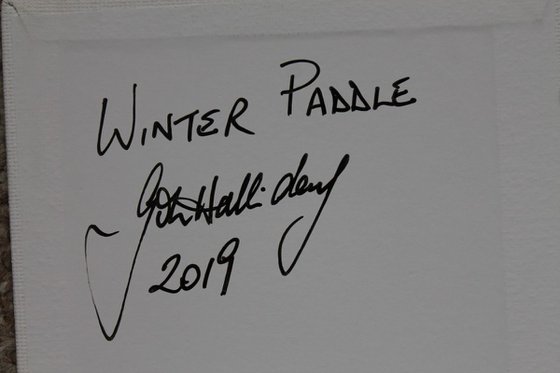 WINTER PADDLE
John Halliday
2019